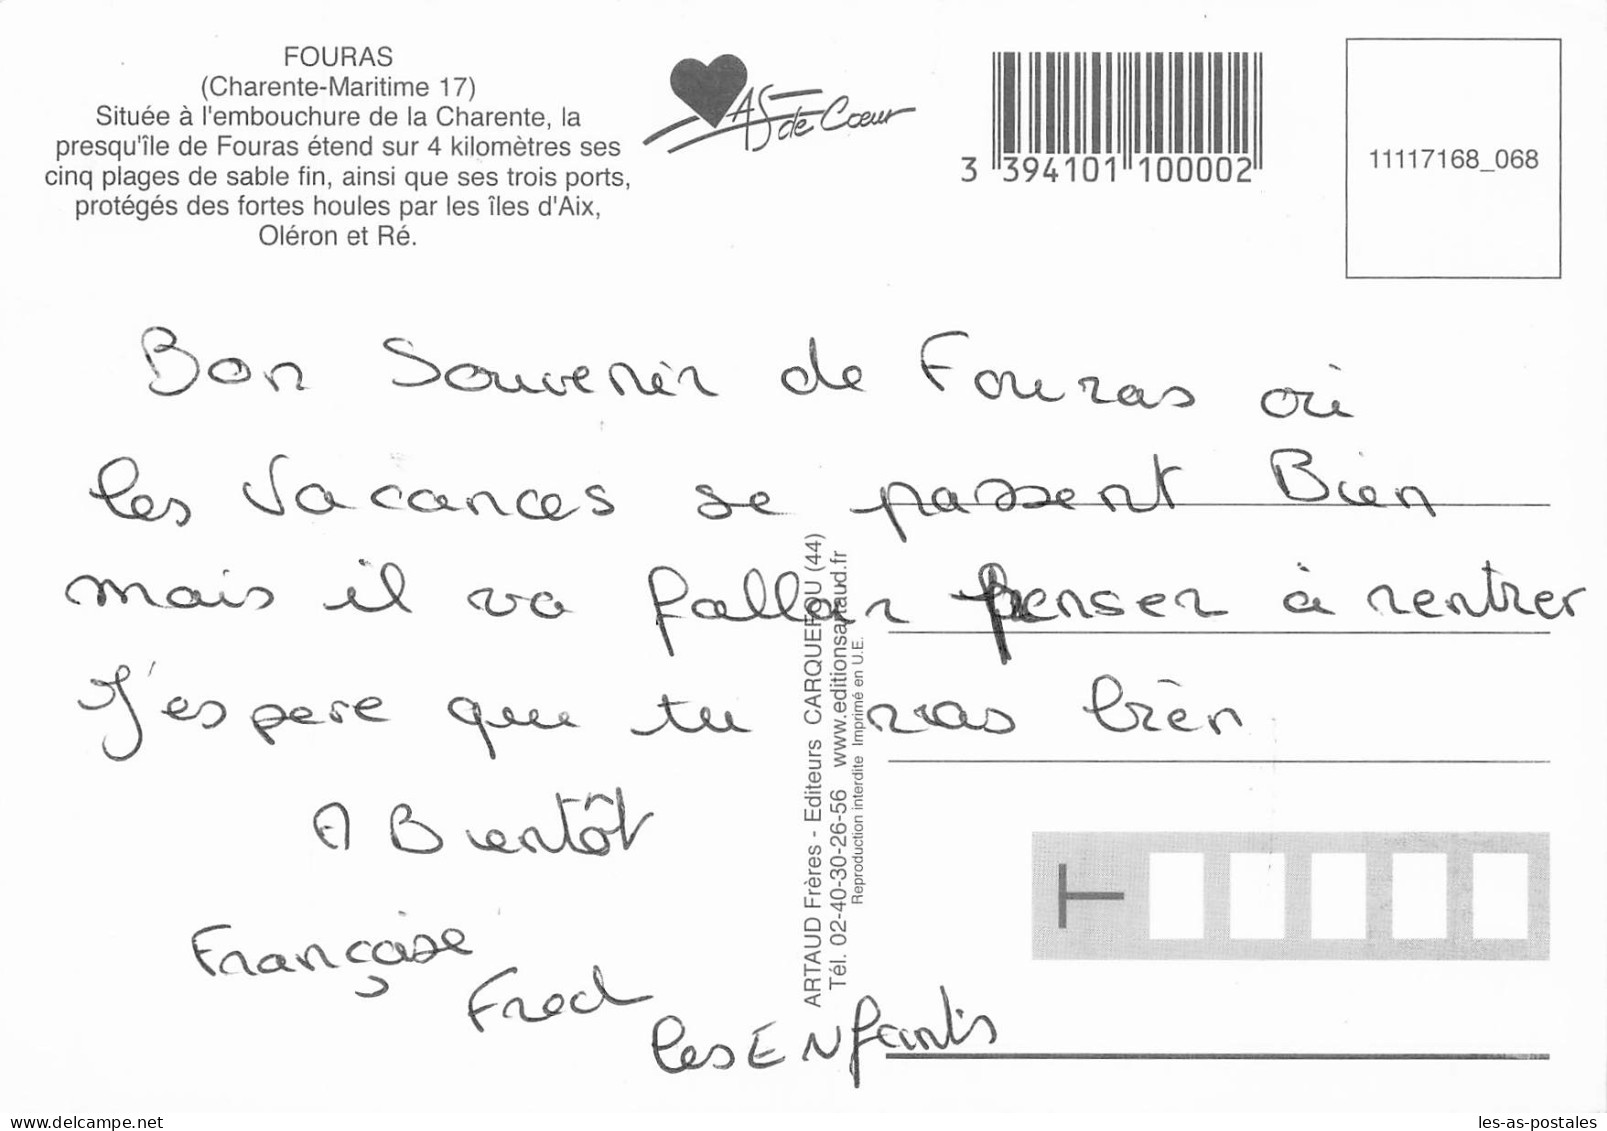 FOURAS
(Charente-Maritime 17)
Située à l'embouchure de la Charente, la
presqu'île de Fouras étend sur 4 kilomètres ses
cinq plages de sable fin, ainsi que ses trois ports,
protégés des fortes houles par les îles d'Aix,
Oléron et Ré.
AS de Cœur
3 394101 100002
11117168_068
Bon Souvenir de Fouras où
les Vacances se passent Bien
mais il va fallair penser à rentrer
J'espere que tu vas bien
A Bientôt
Françoise
Fred
les ENfants
ARTAUD Frères - Editeurs CARQUEFOU (44)
Tél. 02-40-30-26-56 www.editionsartaud.fr
Reproduction interdite Imprimé en U.E.
T
delcampe.net
les-as-postales